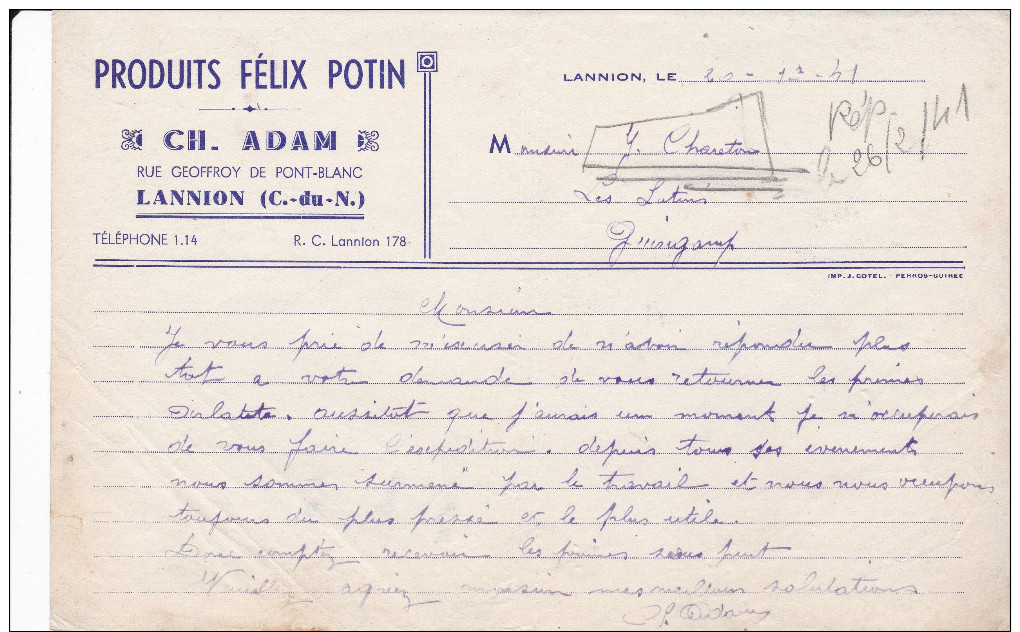 PRODUITS FÉLIX POTIN
CH. ADAM
RUE GEOFFROY DE PONT-BLANC
LANNION (C.-du-N.)
TÉLÉPHONE 1.14 R. C. Lannion 178
LANNION, LE 41
Monsieur Y. Chareton
Rép
le 26/2/41
Les Lutins
Guingamp
IMP. J. COTEL. - PERROS-GUIREC
Monsieur
Je vous prie de m'excuser de n'avoir répondu plus
tot a votre demande de vous retourner les primes
aussitot que j'aurais un moment je m'occuperais
de vous faire l'éxpedition. depuis tous ses évenements
nous sommes surmené par le travail et nous nous occupons
toujours du plus pressé et le plus utile.
Donc comptez recevoir les primes sous peut
Veuillez agréez monsieur mes meilleurs salutations
Adam